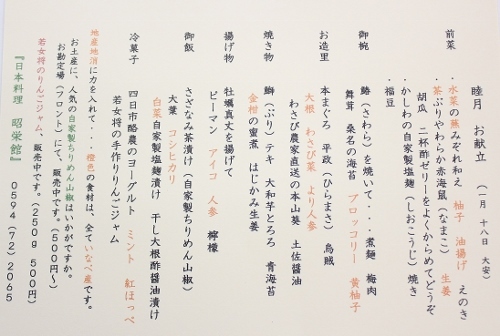 睦月 お献立 (一月 十八日 大安)
前菜
・水菜の蕪みぞれ和え 柚子 油揚げ えのき
・茶ぶりやわらか赤海鼠(なまこ) 生姜
胡瓜 二杯酢ゼリーをよくからめてどうぞ
・かしわの自家製塩麹(しおこうじ)焼き
・福豆
御椀
鰆(さわら)を焼いて・・・煮麺 梅肉
舞茸 桑名の海苔 ブロッコリー 黄柚子
お造里
本まぐろ 平政(ひらまさ) 烏賊
大根 わさび菜 より人参
わさび農家直送の本山葵 土佐醤油
焼き物
鰤(ぶり)テキ 大和芋とろろ 青海苔
金柑の蜜煮 はじかみ生姜
揚げ物
牡蠣真丈を揚げて
ピーマン アイコ 人参 檸檬
御飯
さざなみ茶漬け(自家製ちりめん山椒)
大葉 コシヒカリ
白菜自家製塩麹漬け 干し大根酢醤油漬け
冷菓子
四日市酪農のヨーグルト ミント 紅ほっぺ
若女将の手作りりんごジャム
地産地消に力を入れて・・・橙色の食材は、全ていなべ産です。
お土産に、人気の自家製ちりめん山椒はいかがですか。
お勘定場(フロント)にて、販売中です。(500円〜)
若女将のりんごジャム、販売中です。(250g 500円)
『日本料理 昭栄館』 0594(72)2065